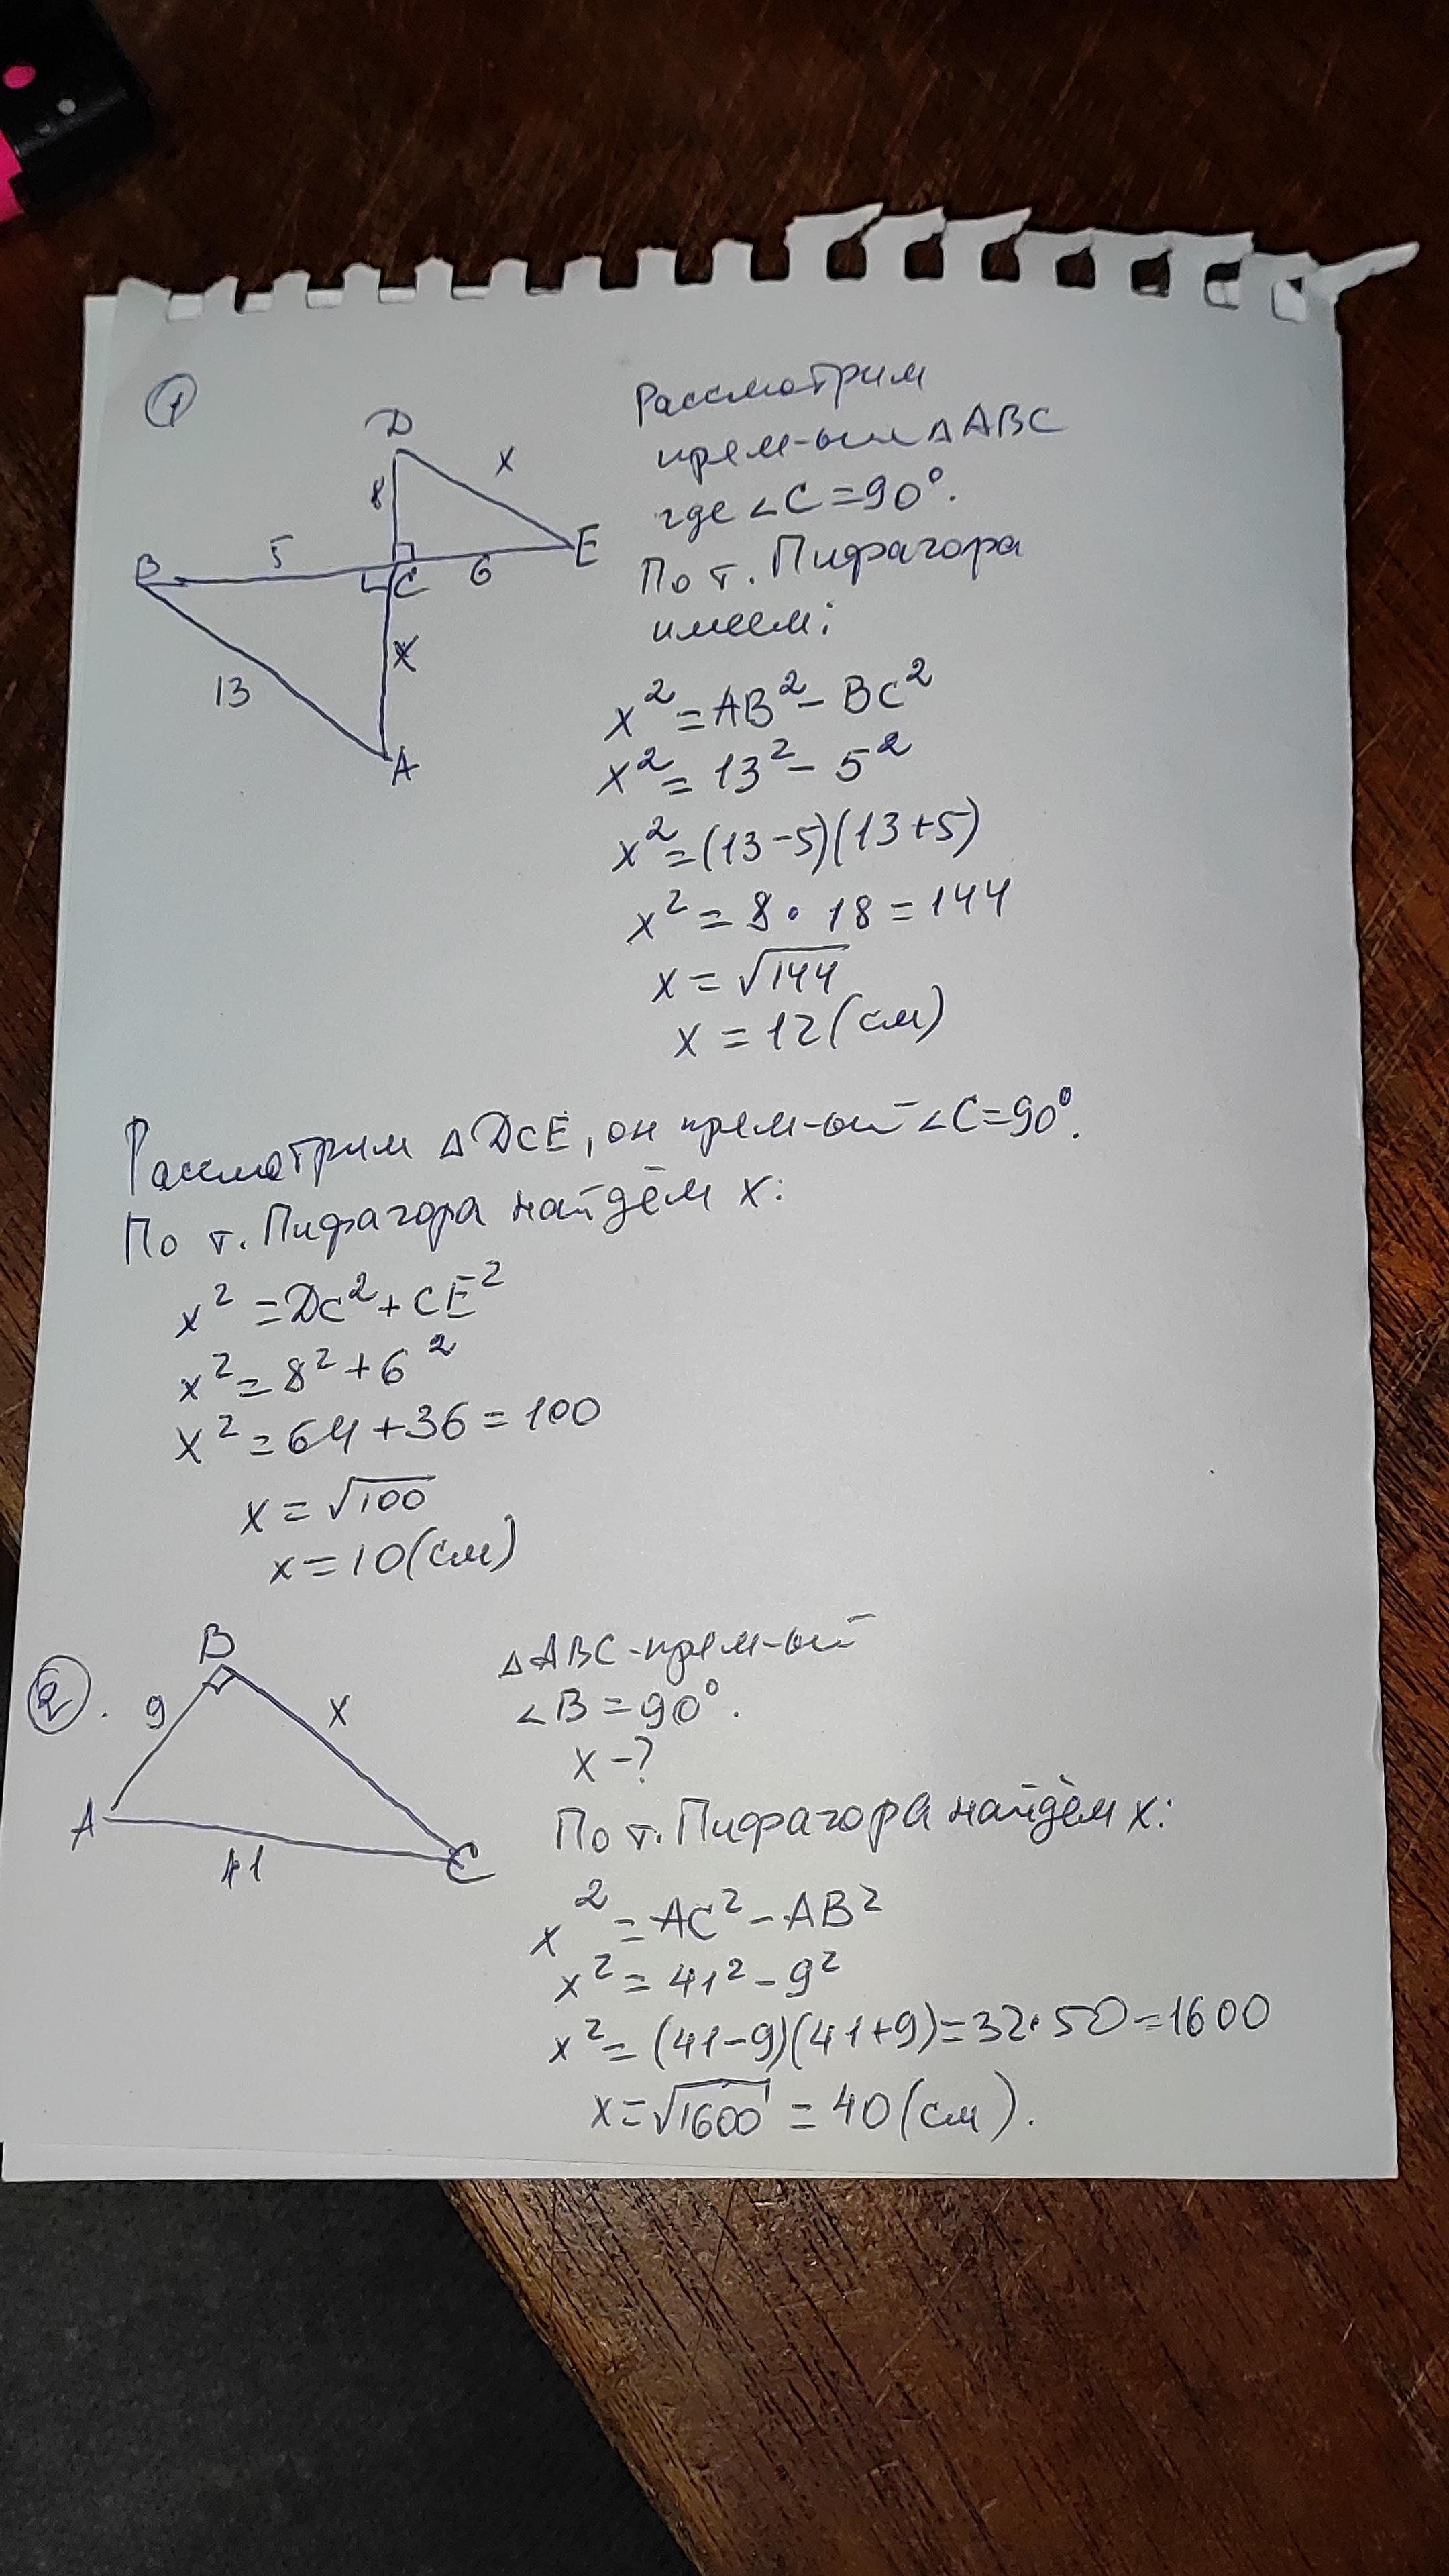 ①
D
x
8
5
E
B
C
6
x
13
A
Рассмотрим
прям-ый △ABC
где ∠C=90°.
По т. Пифагора
имеем:
x²=AB²-BC²
x²=13²-5²
x²=(13-5)(13+5)
x²=8·18=144
x=√144
x=12(см)
Рассмотрим △DCE, он прям-ый ∠C=90°.
По т. Пифагора найдём x:
x²=DC²+CE²
x²=8²+6²
x²=64+36=100
x=√100
x=10(см)
②.
B
9
x
A
41
C
△ABC-прям-ый
∠B=90°.
x-?
По т. Пифагора найдём x:
x²=AC²-AB²
x²=41²-9²
x²=(41-9)(41+9)=32·50=1600
x=√1600=40(см).